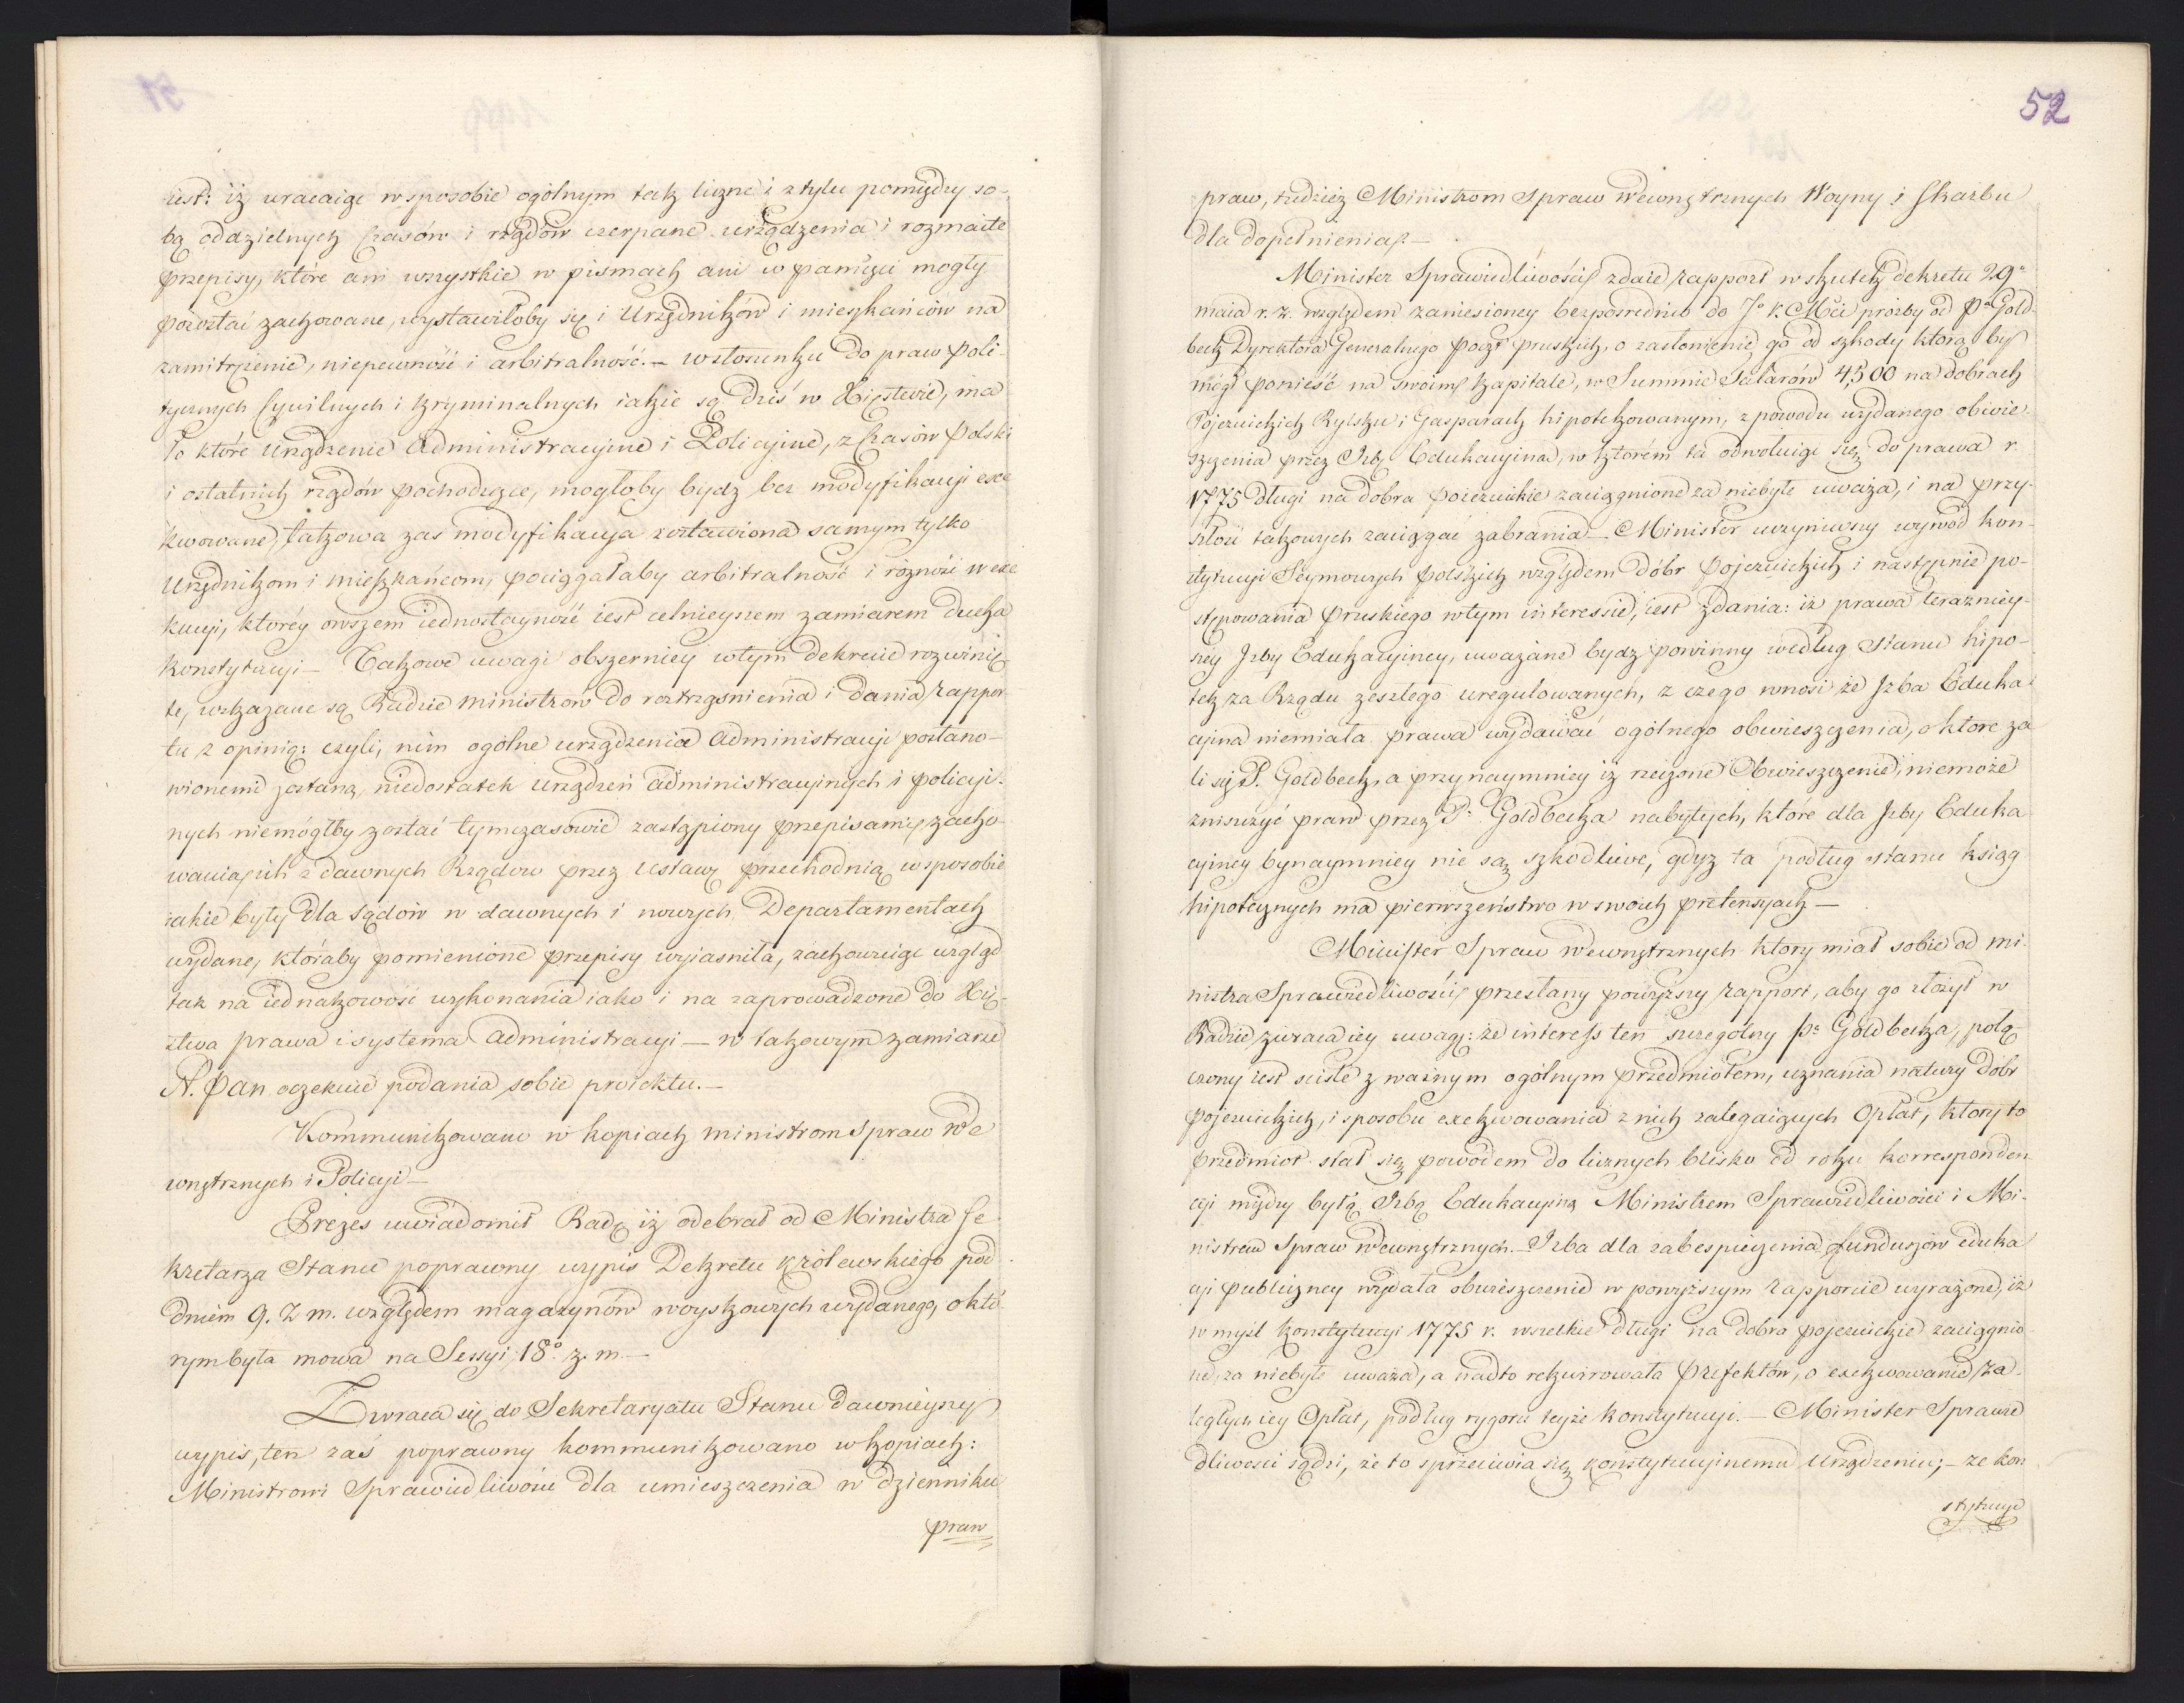 iest: iż wracaiąc w sposobie ogólnym tak liczne i z tylu pomiędzy so-
bą oddzielnych czasów i rządów czerpane urządzenia i rozmaite
przepisy, które ani wszystkie w pismach ani w pamięci mogły
pozostać zachowane, wystawiłoby się i Urzędników i mieszkańców na
zamitrężenie, niepewność i arbitralność. — w stosunku do praw poli-
tycznych Cywilnych i kryminalnych iakie są dziś w Xięstwie, ma-
ło które Urządzenie Administracyine i Policyine, z Czasów Polski
i ostatnich rządów pochodzące, mogłoby bydz bez modyfikacyi exe
kwowane, takowa zaś modyfikacya zostawiona samym tylko
Urzędnikom i mieszkańcom, pociągałaby arbitralność i rożność w exe
kucyi, którey owszem iednostayność iest celnieyszem zamiarem ducha
konstytucyi — Takowe uwagi obszerniey w tym dekrecie rozwinię-
te, wskazane są Radzie Ministrów do roztrząśnienia i dania rappor-
tu z opinią: czyli, nim ogólne urządzenia Administracyi postano-
wionemi zostaną, niedostatek urządzeń administracyinych i policyi-
nych niemógłby zostać tymczasowie zastąpiony przepisami zacho-
wuiącich z dawnych Rządow przez Ustawę przechodnią w sposobie
iakie były dla Sądów w dawnych i nowych Departamentach
wydane, któraby pomienione przepisy wyiasniła, zachowuiąc wzgląd
tak na iednakowość wykonania iako i na zaprowadzone do Xię-
stwa prawa i systema Administracyi — w takowym zamiarze
N. Pan oczekuie podania sobie proiektu. —
Kommunikowano w kopiach Ministrom Spraw We
wnętrznych i Policyi —
Prezes uwiadomił Radę iż odebrał od Ministra Se
kretarza Stanu poprawny wypis Dekretu królewskiego pod
dniem 9. z. m. względem magazynów woyskowych wydanego, o któ
rym była mowa na Sessyi 18º z. m —
Zwraca się do Sekretaryatu Stanu dawnieyszy
wypis, ten zaś poprawny kommunikowano w kopiach:
Ministrowi Sprawiedliwości dla umieszczenia w dzienniku
praw
52
praw, tudzież Ministrom Spraw Wewnętrznych Woyny i Skarbu
dla dopełnienia —
Minister Sprawiedliwości zdaie rapport w skutek dekretu 29ª
maia r. z. względem zaniesioney bezpośrednio do Jº K. Mci prozby od Pª Gold-
beck Dyrektora Generalnego poczt pruskich, o zasłonienie go od szkody którą by
mógł ponieść na swoim kapitale, w Summie Talarów 4,500 na dobrach
Pojezuickich Rylsku i Gasparach hipotekowanym, z powodu wydanego obwie-
szczenia przez Izbę Edukacyiną, w którém ta odwołuiąc się do prawa r.
1775 długi na dobra poiezuickie zaciągnione za niebyłe uważa, i na przy-
szłość takowych zaciągać zabrania — Minister uczyniwszy wywod kon-
stytucyi Seymowych polskich względem dóbr pojezuickich i następnie po-
stępowania Pruskiego w tym interessie, iest zdania: iż prawa teraźniey-
szey Izby Edukacyiney, uważane bydz powinny według Stanu hipo-
tek za Rządu zeszłego uregulowanych, z czego wnosi że Izba Eduka-
cyina niemiała prawa wydawać ogólnego obwieszczenia, o ktore ża
li się P. Goldbeck, a przynaymniey iż rzeczone Obwieszczenie, niemoże
zniszczyć praw przez Pª Goldbecka nabytych, które dla Izby Eduka
cyiney bynaymniey nie są szkodliwe, gdyż ta podług stanu ksiąg
hipotecznych ma pierwszeństwo w swoich pretensyach —
Minister Spraw Wewnętrznych ktory miał sobie od Mi-
nistra Sprawiedliwości przesłany powyższy rapport, aby go złożył w
Radzie zwraca iey uwagę: że interess ten szczególny Pª Goldbecka, połą
czony iest ściśle z ważnym ogólnym przedmiotem, uznania natury dobr
pojezuickich, i sposobu exekwowania z nich zalegaiących Opłat, który to
przedmiot stał się powodem do licznych blisko od roku korresponden
cyi między byłą Izbą Edukacyiną Ministrem Sprawiedliwości i Mi-
nistrem Spraw Wewnętrznych. — Izba dla zabespieczenia funduszów eduka
cyi publiczney wydała obwieszczenie w powyższym rapporcie wyrażone, iż
w myśl konstytucyi 1775 r. wszelkie długi na dobra pojezuickie zaciągnio
ne, za niebyłe uważa, a nadto rekwirowała Prefektów, o exekwowanie za-
ległych iey Opłat, podług rygoru teyże konstytucyi. — Minister Sprawie
dliwości sądzi, że to sprzeciwia się konstytucyinemu Urządzeniu; — że kon
stytucye